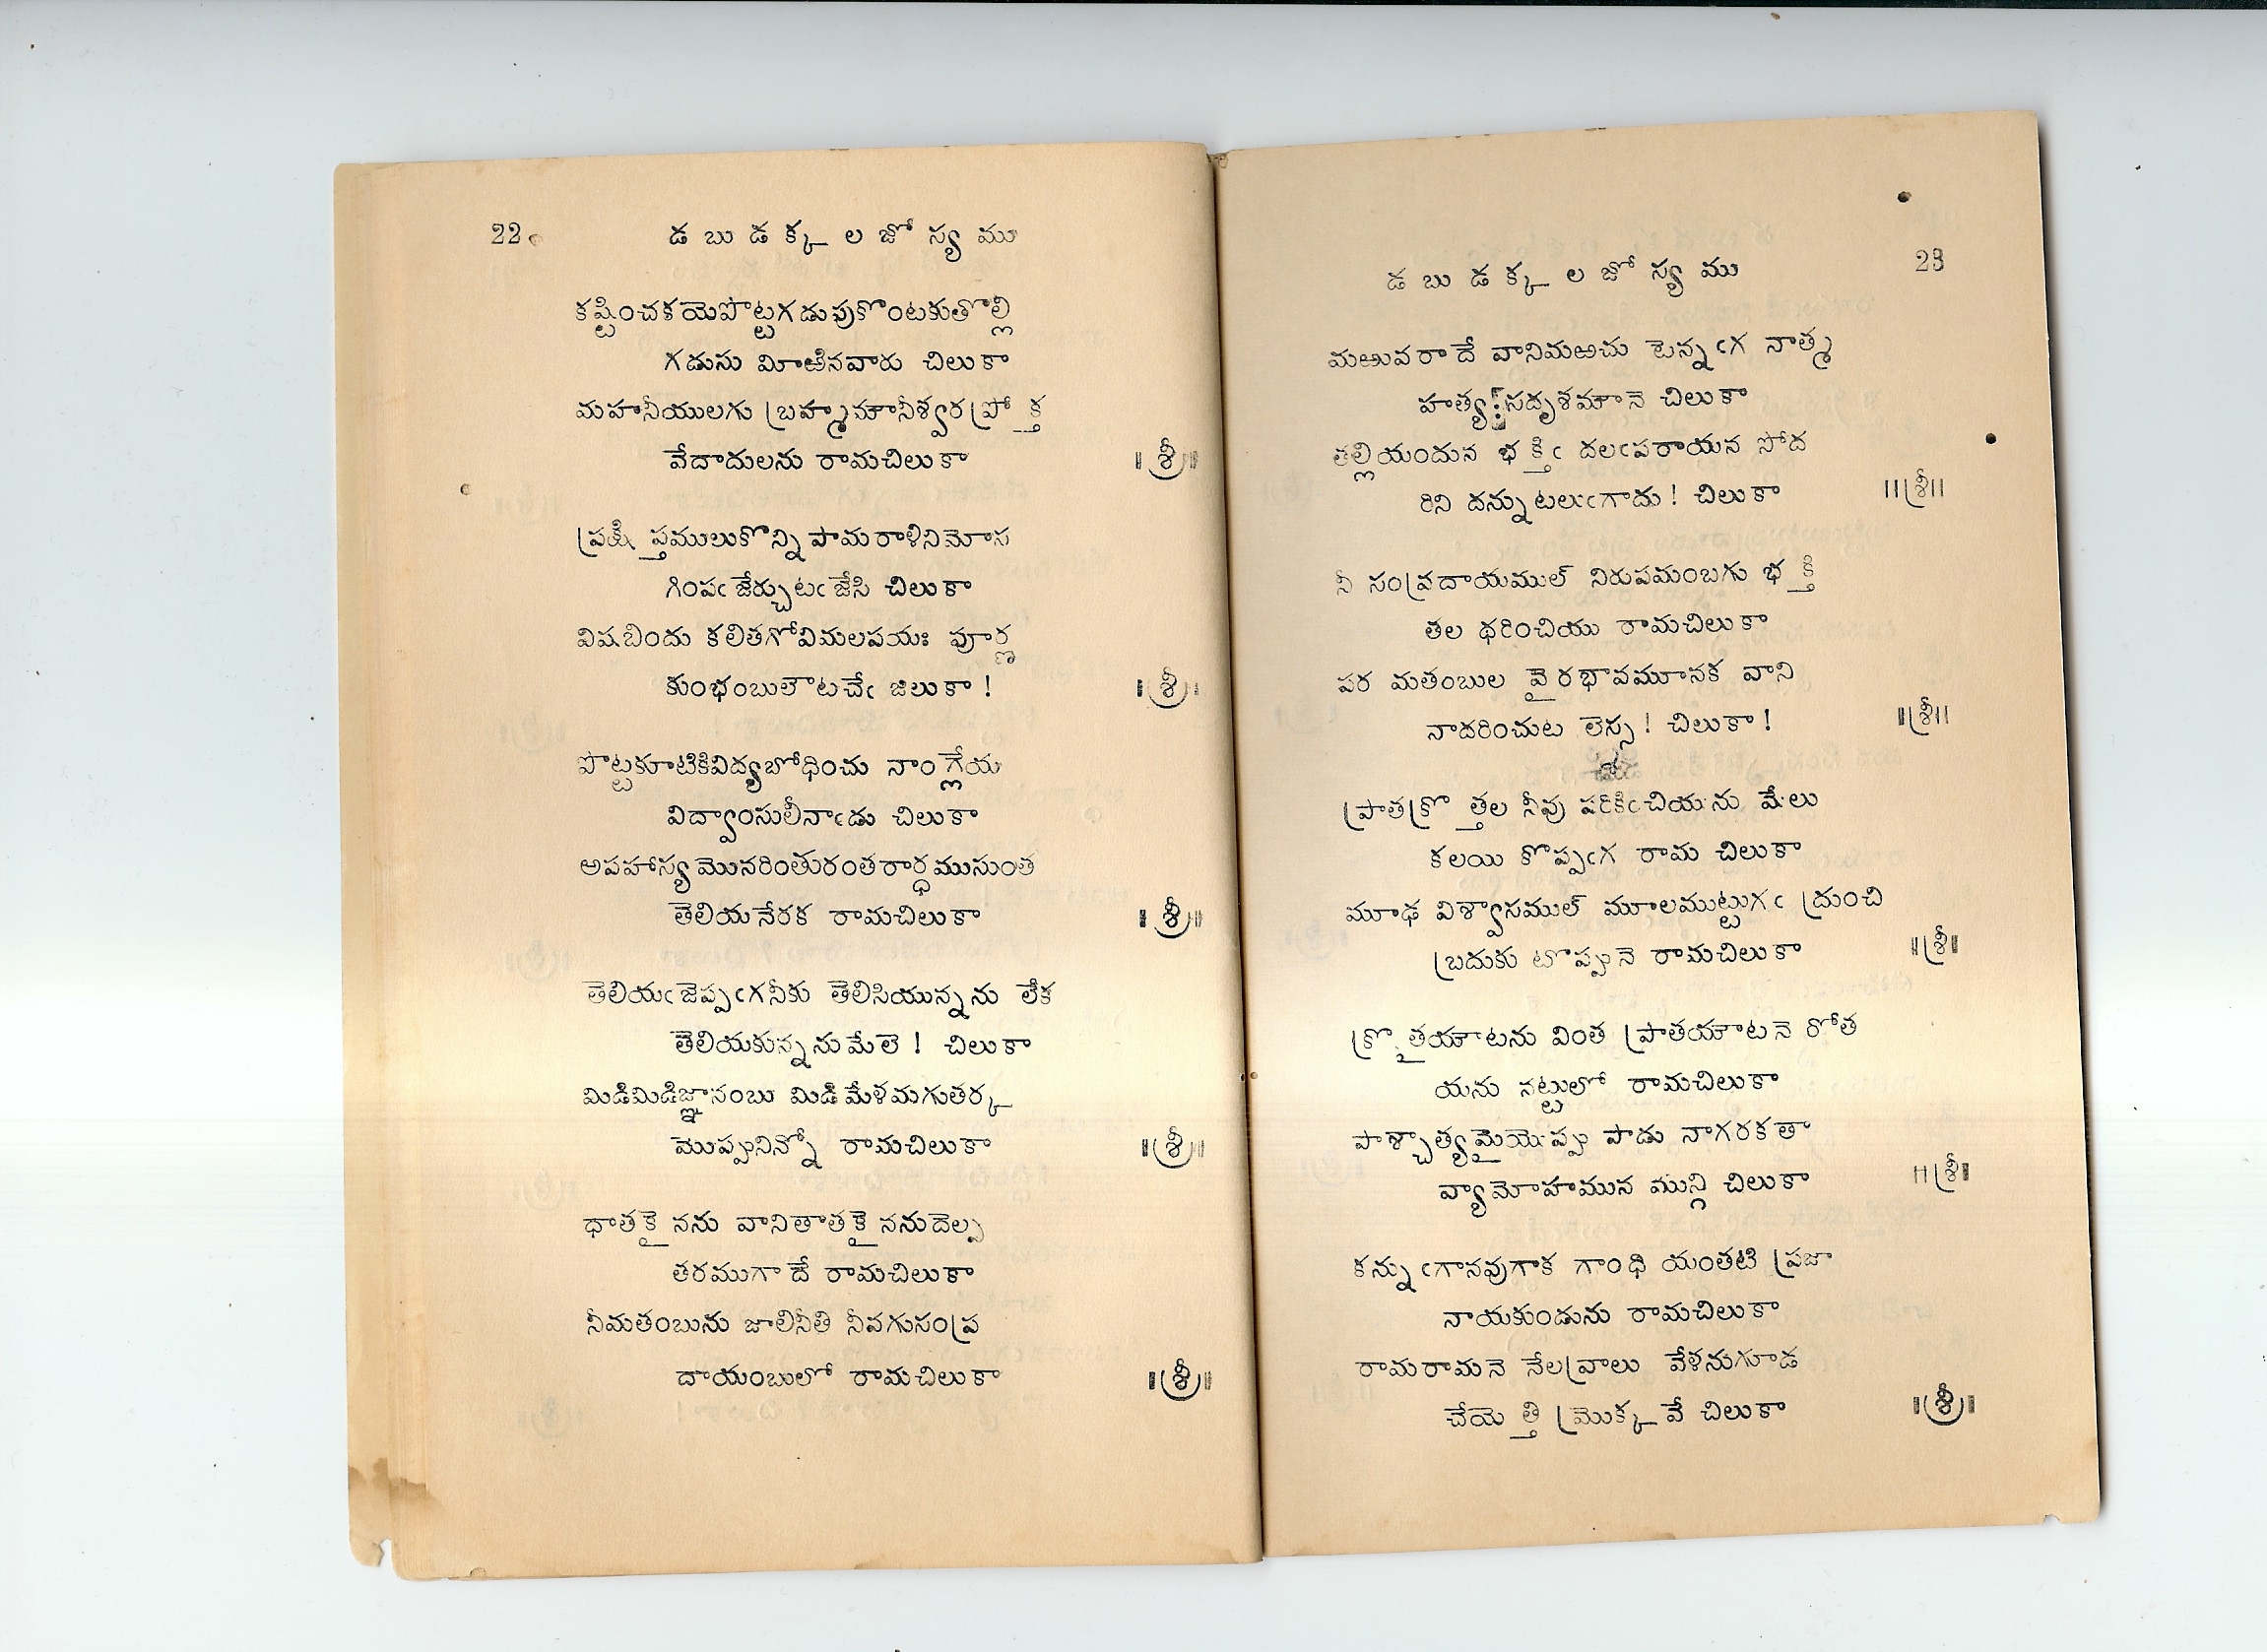 22 డ బు డ క్క ల జో స్య ము
కష్టించకయెపొట్టగడుపుకొంటకుతొల్లి
గడుసు మీఱినవారు చిలుకా
మహనీయులగు బ్రహ్మమౌనీశ్వరప్రోక్త
వేదాదులను రామచిలుకా ॥శ్రీ॥
ప్రక్షిప్తములుకొన్ని పామరాళినిమోస
గింపఁ జేర్చుటఁ జేసి చిలుకా
విషబిందు కలితగోవిమలపయః పూర్ణ
కుంభంబులౌటచేఁ జిలుకా ! ॥శ్రీ॥
పొట్టకూటికివిద్యబోధించు నాంగ్లేయ
విద్వాంసులీనాఁడు చిలుకా
అపహాస్యమొనరింతురంతరార్ధముసుంత
తెలియనేరక రామచిలుకా ॥శ్రీ॥
తెలియఁ జెప్పఁగనీకు తెలిసియున్నను లేక
తెలియకున్ననుమేలె ! చిలుకా
మిడిమిడిజ్ఞానంబు మిడిమేళమగుతర్క
మొప్పునిన్నో రామచిలుకా ॥శ్రీ॥
ధాతకైనను వానితాతకైననుదెల్ప
తరముగాదే రామచిలుకా
నీమతంబును జాలినీతి నీవగుసంప్ర
దాయంబులో రామచిలుకా ॥శ్రీ॥
డ బు డ క్క ల జో స్య ము 23
మఱువరాదే వానిమఱచు టెన్నఁగ నాత్మ
హత్య సదృశమౌనె చిలుకా
తల్లియందున భక్తిఁ దలఁపరాయన సోద
రిని దన్నుటలుఁగాదు ! చిలుకా ॥శ్రీ॥
నీ సంప్రదాయముల్ నిరుపమంబగు భక్తి
తల ధరించియు రామచిలుకా
పర మతంబుల వైరభావమూనక వాని
నాదరించుట లెస్స ! చిలుకా ! ॥శ్రీ॥
ప్రాతక్రొత్తల నీవు పరికించియును మేలు
కలయి కొప్పఁగ రామ చిలుకా
మూఢ విశ్వాసముల్ మూలముట్టుగఁ ద్రుంచి
బ్రదుకు టొప్పునె రామచిలుకా ॥శ్రీ॥
క్రొత్తయౌటను వింత ప్రాతయౌటనె రోత
యను నట్టులో రామచిలుకా
పాశ్చాత్యమైయొప్పు పాడు నాగరకతా
వ్యామోహమున మున్గి చిలుకా ॥శ్రీ॥
కన్నుఁగానవుగాక గాంధి యంతటి ప్రజా
నాయకుండును రామచిలుకా
రామరామనె నేలవ్రాలు వేళనుగూడ
చేయెత్తి మ్రొక్కవే చిలుకా ॥శ్రీ॥